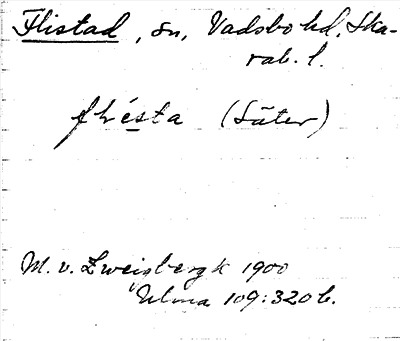 Flistad, sn, Vadsbo hd, Ska-
rab. l.
flèsta (Säter)
M. v. Zweigbergk 1900
Ulma 109:320 b.